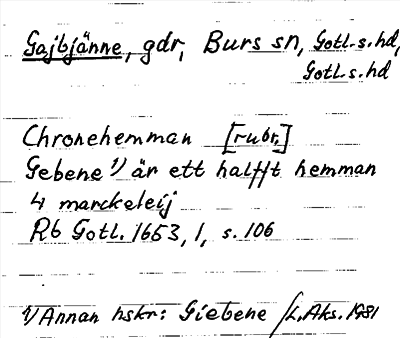 Gajbjänne, gdr, Burs sn, Gotl.s.hd,
Gotl.s.hd
Chronehemman [rubr.]
Gebene 1) är ett halfft hemman
4 marckeleij
Rb Gotl. 1653, 1, s. 106
1) Annan hskr: Giebene /L.Aks. 1981